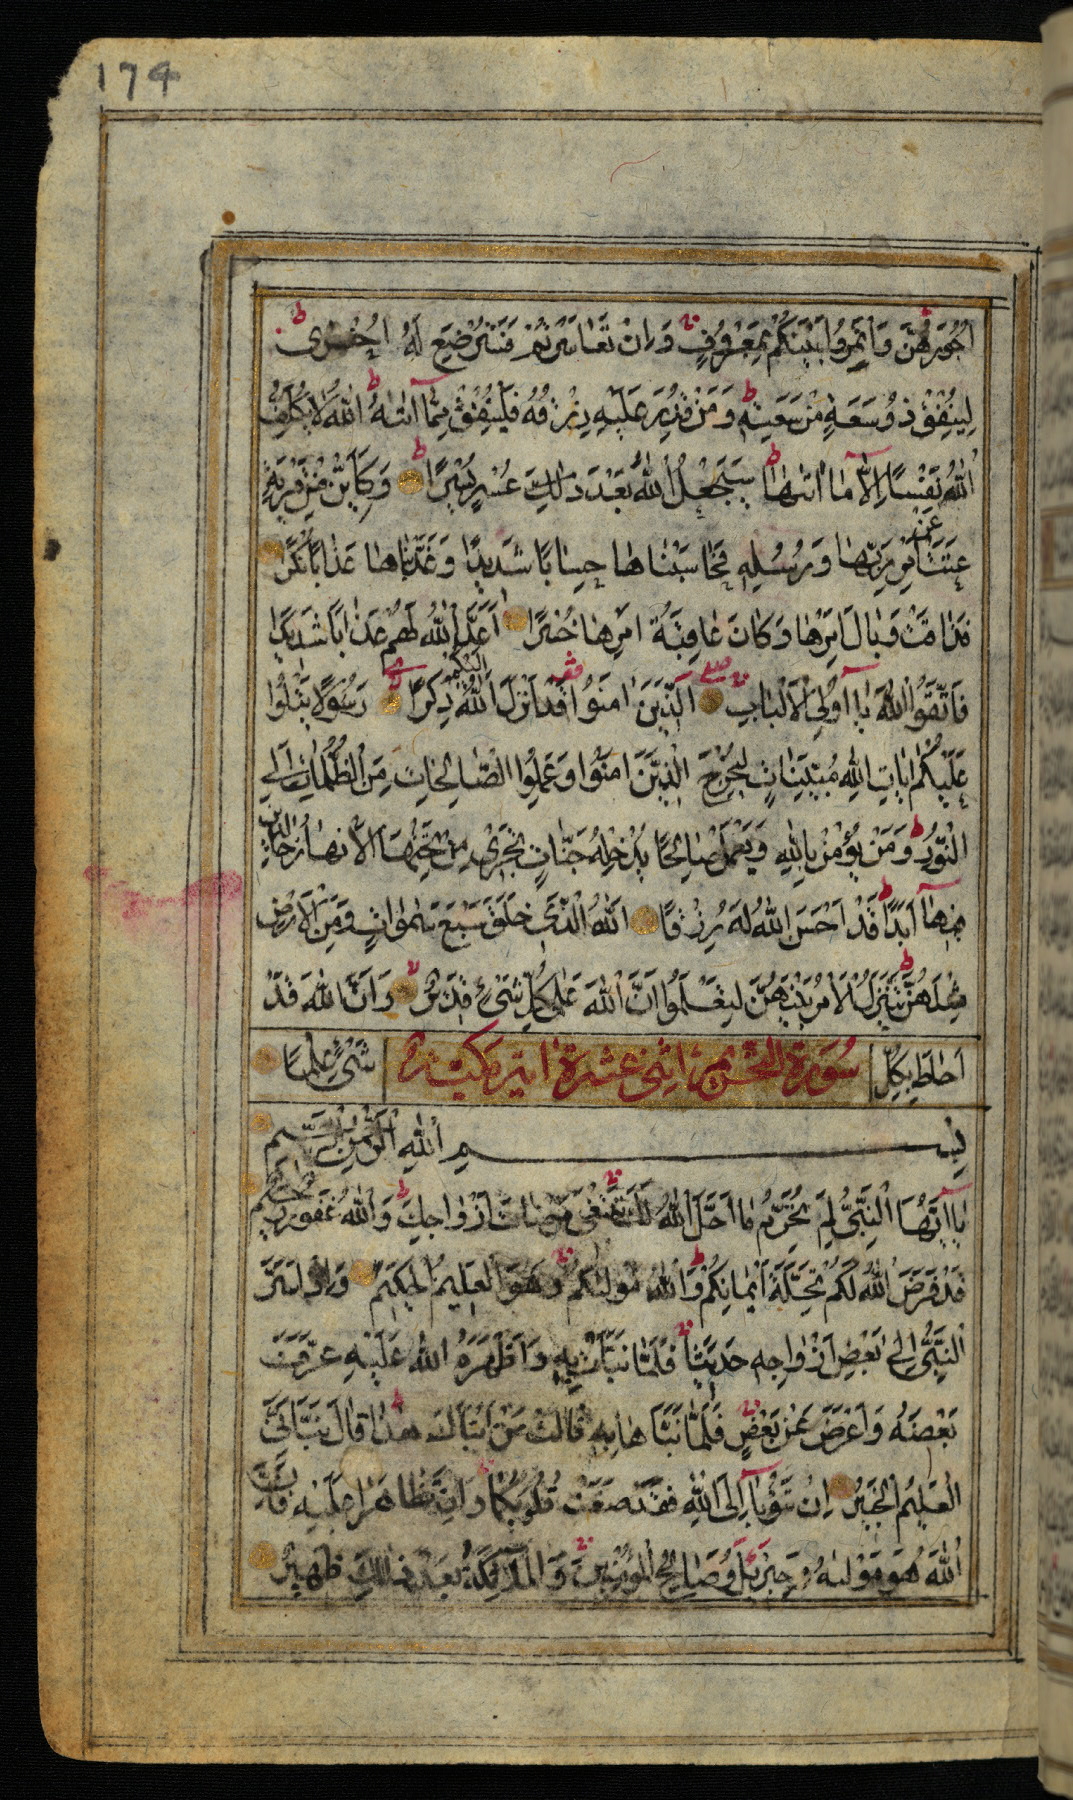 174
اُجُورَهُنَّ وَأْتَمِرُوا بَيْنَكُمْ بِمَعْرُوفٍ وَاِنْ تَعَاسَرْتُمْ فَسَتُرْضِعُ لَهُ اُخْرٰى ط
لِيُنْفِقْ ذُو سَعَةٍ مِنْ سَعَتِهِ ط وَمَنْ قُدِرَ عَلَيْهِ رِزْقُهُ فَلْيُنْفِقْ مِمَّا اٰتٰهُ ط اللّٰهُ لَا يُكَلِّفُ
اللّٰهُ نَفْسًا اِلَّا مَا اٰتٰهَا ط سَيَجْعَلُ اللّٰهُ بَعْدَ ذٰلِكَ عُسْرٍ يُسْرًا ط وَكَاَيِّنْ مِنْ قَرْيَةٍ
عَتَتْ عَنْ اَمْرِ رَبِّهَا وَرُسُلِهِ فَحَاسَبْنَاهَا حِسَابًا شَدِيدًا وَعَذَّبْنَاهَا عَذَابًا نُكْرًا
فَذَاقَتْ وَبَالَ اَمْرِهَا وَكَانَ عَاقِبَةُ اَمْرِهَا خُسْرًا اَعَدَّ اللّٰهُ لَهُمْ عَذَابًا شَدِيدًا
فَاتَّقُوا اللّٰهَ يَا اُولِي الْاَلْبَابِ صلے الَّذِينَ اٰمَنُوا قَدْ اَنْزَلَ اللّٰهُ اِلَيْكُمْ ذِكْرًا لا رَسُولًا يَتْلُوا
عَلَيْكُمْ اٰيَاتِ اللّٰهِ مُبَيِّنَاتٍ لِيُخْرِجَ الَّذِينَ اٰمَنُوا وَعَمِلُوا الصَّالِحَاتِ مِنَ الظُّلُمَاتِ اِلَى
النُّورِ ط وَمَنْ يُؤْمِنْ بِاللّٰهِ وَيَعْمَلْ صَالِحًا يُدْخِلْهُ جَنَّاتٍ تَجْرِي مِنْ تَحْتِهَا الْاَنْهَارُ خَالِدِينَ
فِيهَا اَبَدًا ط قَدْ اَحْسَنَ اللّٰهُ لَهُ رِزْقًا اللّٰهُ الَّذِي خَلَقَ سَبْعَ سَمٰوَاتٍ وَمِنَ الْاَرْضِ
مِثْلَهُنَّ ط يَتَنَزَّلُ الْاَمْرُ بَيْنَهُنَّ لِتَعْلَمُوا اَنَّ اللّٰهَ عَلٰى كُلِّ شَيْءٍ قَدِيرٌ لا وَاَنَّ اللّٰهَ قَدْ
اَحَاطَ بِكُلِّ سُورَة التحريم اثني عشرة اية مكية شَيْءٍ عِلْمًا
بِسْمِ اللّٰهِ الرَّحْمٰنِ الرَّحِيمِ
يَا اَيُّهَا النَّبِيُّ لِمَ تُحَرِّمُ مَا اَحَلَّ اللّٰهُ لَكَ تَبْتَغِي مَرْضَاتَ اَزْوَاجِكَ ط وَاللّٰهُ غَفُورٌ رَحِيمٌ
قَدْ فَرَضَ اللّٰهُ لَكُمْ تَحِلَّةَ اَيْمَانِكُمْ ط وَاللّٰهُ مَوْلٰيكُمْ وَهُوَ الْعَلِيمُ الْحَكِيمُ وَاِذْ اَسَرَّ
النَّبِيُّ اِلٰى بَعْضِ اَزْوَاجِهِ حَدِيثًا فَلَمَّا نَبَّاَتْ بِهِ وَاَظْهَرَهُ اللّٰهُ عَلَيْهِ عَرَّفَ
بَعْضَهُ وَاَعْرَضَ عَنْ بَعْضٍ فَلَمَّا نَبَّاَهَا بِهِ قَالَتْ مَنْ اَنْبَاَكَ هٰذَا ط قَالَ نَبَّاَنِيَ
الْعَلِيمُ الْخَبِيرُ اِنْ تَتُوبَا اِلَى اللّٰهِ فَقَدْ صَغَتْ قُلُوبُكُمَا وَاِنْ تَظَاهَرَا عَلَيْهِ فَاِنَّ
اللّٰهَ هُوَ مَوْلٰيهُ وَجِبْرِيلُ وَصَالِحُ الْمُؤْمِنِينَ وَالْمَلٰئِكَةُ بَعْدَ ذٰلِكَ ظَهِيرٌ